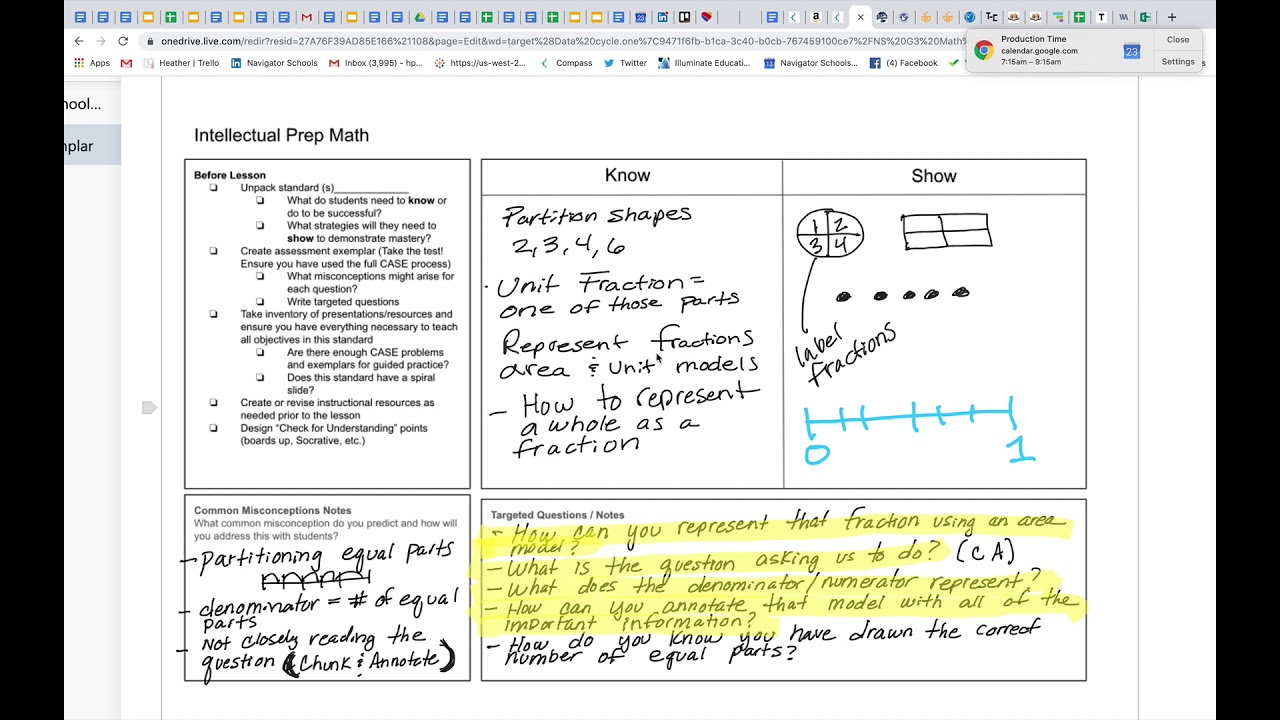 onedrive.live.com/redir?resid=27A76F39AD85E166%21108&page=Edit&wd=target%28Data%20cycle.one%7C9471f6fb-b1ca-3c40-b0cb-767459100ce7%2FNS%20G3%20Math%
Production Time
calendar.google.com
7:15am – 9:15am
23
Close
Settings
Apps
Heather | Trello
Navigator Schools
Inbox (3,995) - hp...
https://us-west-2...
Compass
Twitter
Illuminate Educati...
Navigator Schools...
(4) Facebook
hool...
nplar
Intellectual Prep Math
Before Lesson
Unpack standard (s)______________
What do students need to know or
do to be successful?
What strategies will they need to
show to demonstrate mastery?
Create assessment exemplar (Take the test!
Ensure you have used the full CASE process)
What misconceptions might arise for
each question?
Write targeted questions
Take inventory of presentations/resources and
ensure you have everything necessary to teach
all objectives in this standard
Are there enough CASE problems
and exemplars for guided practice?
Does this standard have a spiral
slide?
Create or revise instructional resources as
needed prior to the lesson
Design “Check for Understanding” points
(boards up, Socrative, etc.)
Know
Partition shapes
2, 3, 4, 6
· Unit Fraction =
one of those parts
Represent fractions
area & unit models
- How to represent
a whole as a
fraction
Show
1 2
3 4
label
fractions
0 1
Common Misconceptions Notes
What common misconception do you predict and how will
you address this with students?
- Partitioning equal parts
- denominator = # of equal
parts
- Not closely reading the
question (Chunk & Annotate)
Targeted Questions / Notes
- How can you represent that fraction using an area
model?
- What is the question asking us to do? (CA)
- What does the denominator/numerator represent?
- How can you annotate that model with all of the
important information?
- How do you know you have drawn the correct
number of equal parts?